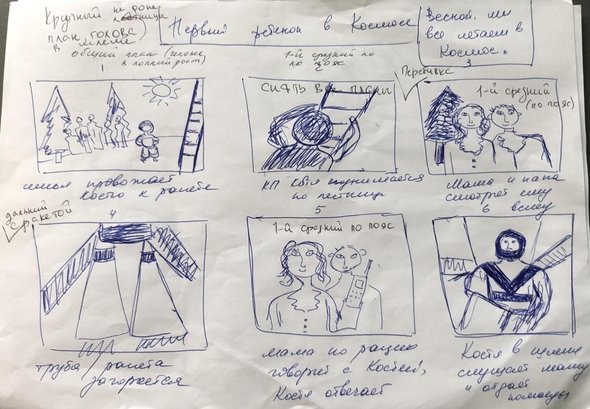 Крупный на фоне лестницы
план, голова
в шлеме
Первый ребенок в Космосе
Весной, мы
все летаем в
Космос.
общий план (человек
в полный рост)
1
1-й средний по
по пояс
2
Перебивка
3
СНЯТЬ ВСЕ ПЛАНЫ
1-й средний
(по пояс)
семья провожает
Костю к ракете
КП Костя поднимается
по лестнице
Мама и папа
смотрят ему
в вслед
дальний
с ракетой
4
5
6
1-й средний по пояс
труба/ракета
загорается
мама по рацию
говорит с Костей,
Костя отвечает
Костя в шлеме
слушает маму
и отдает
команды